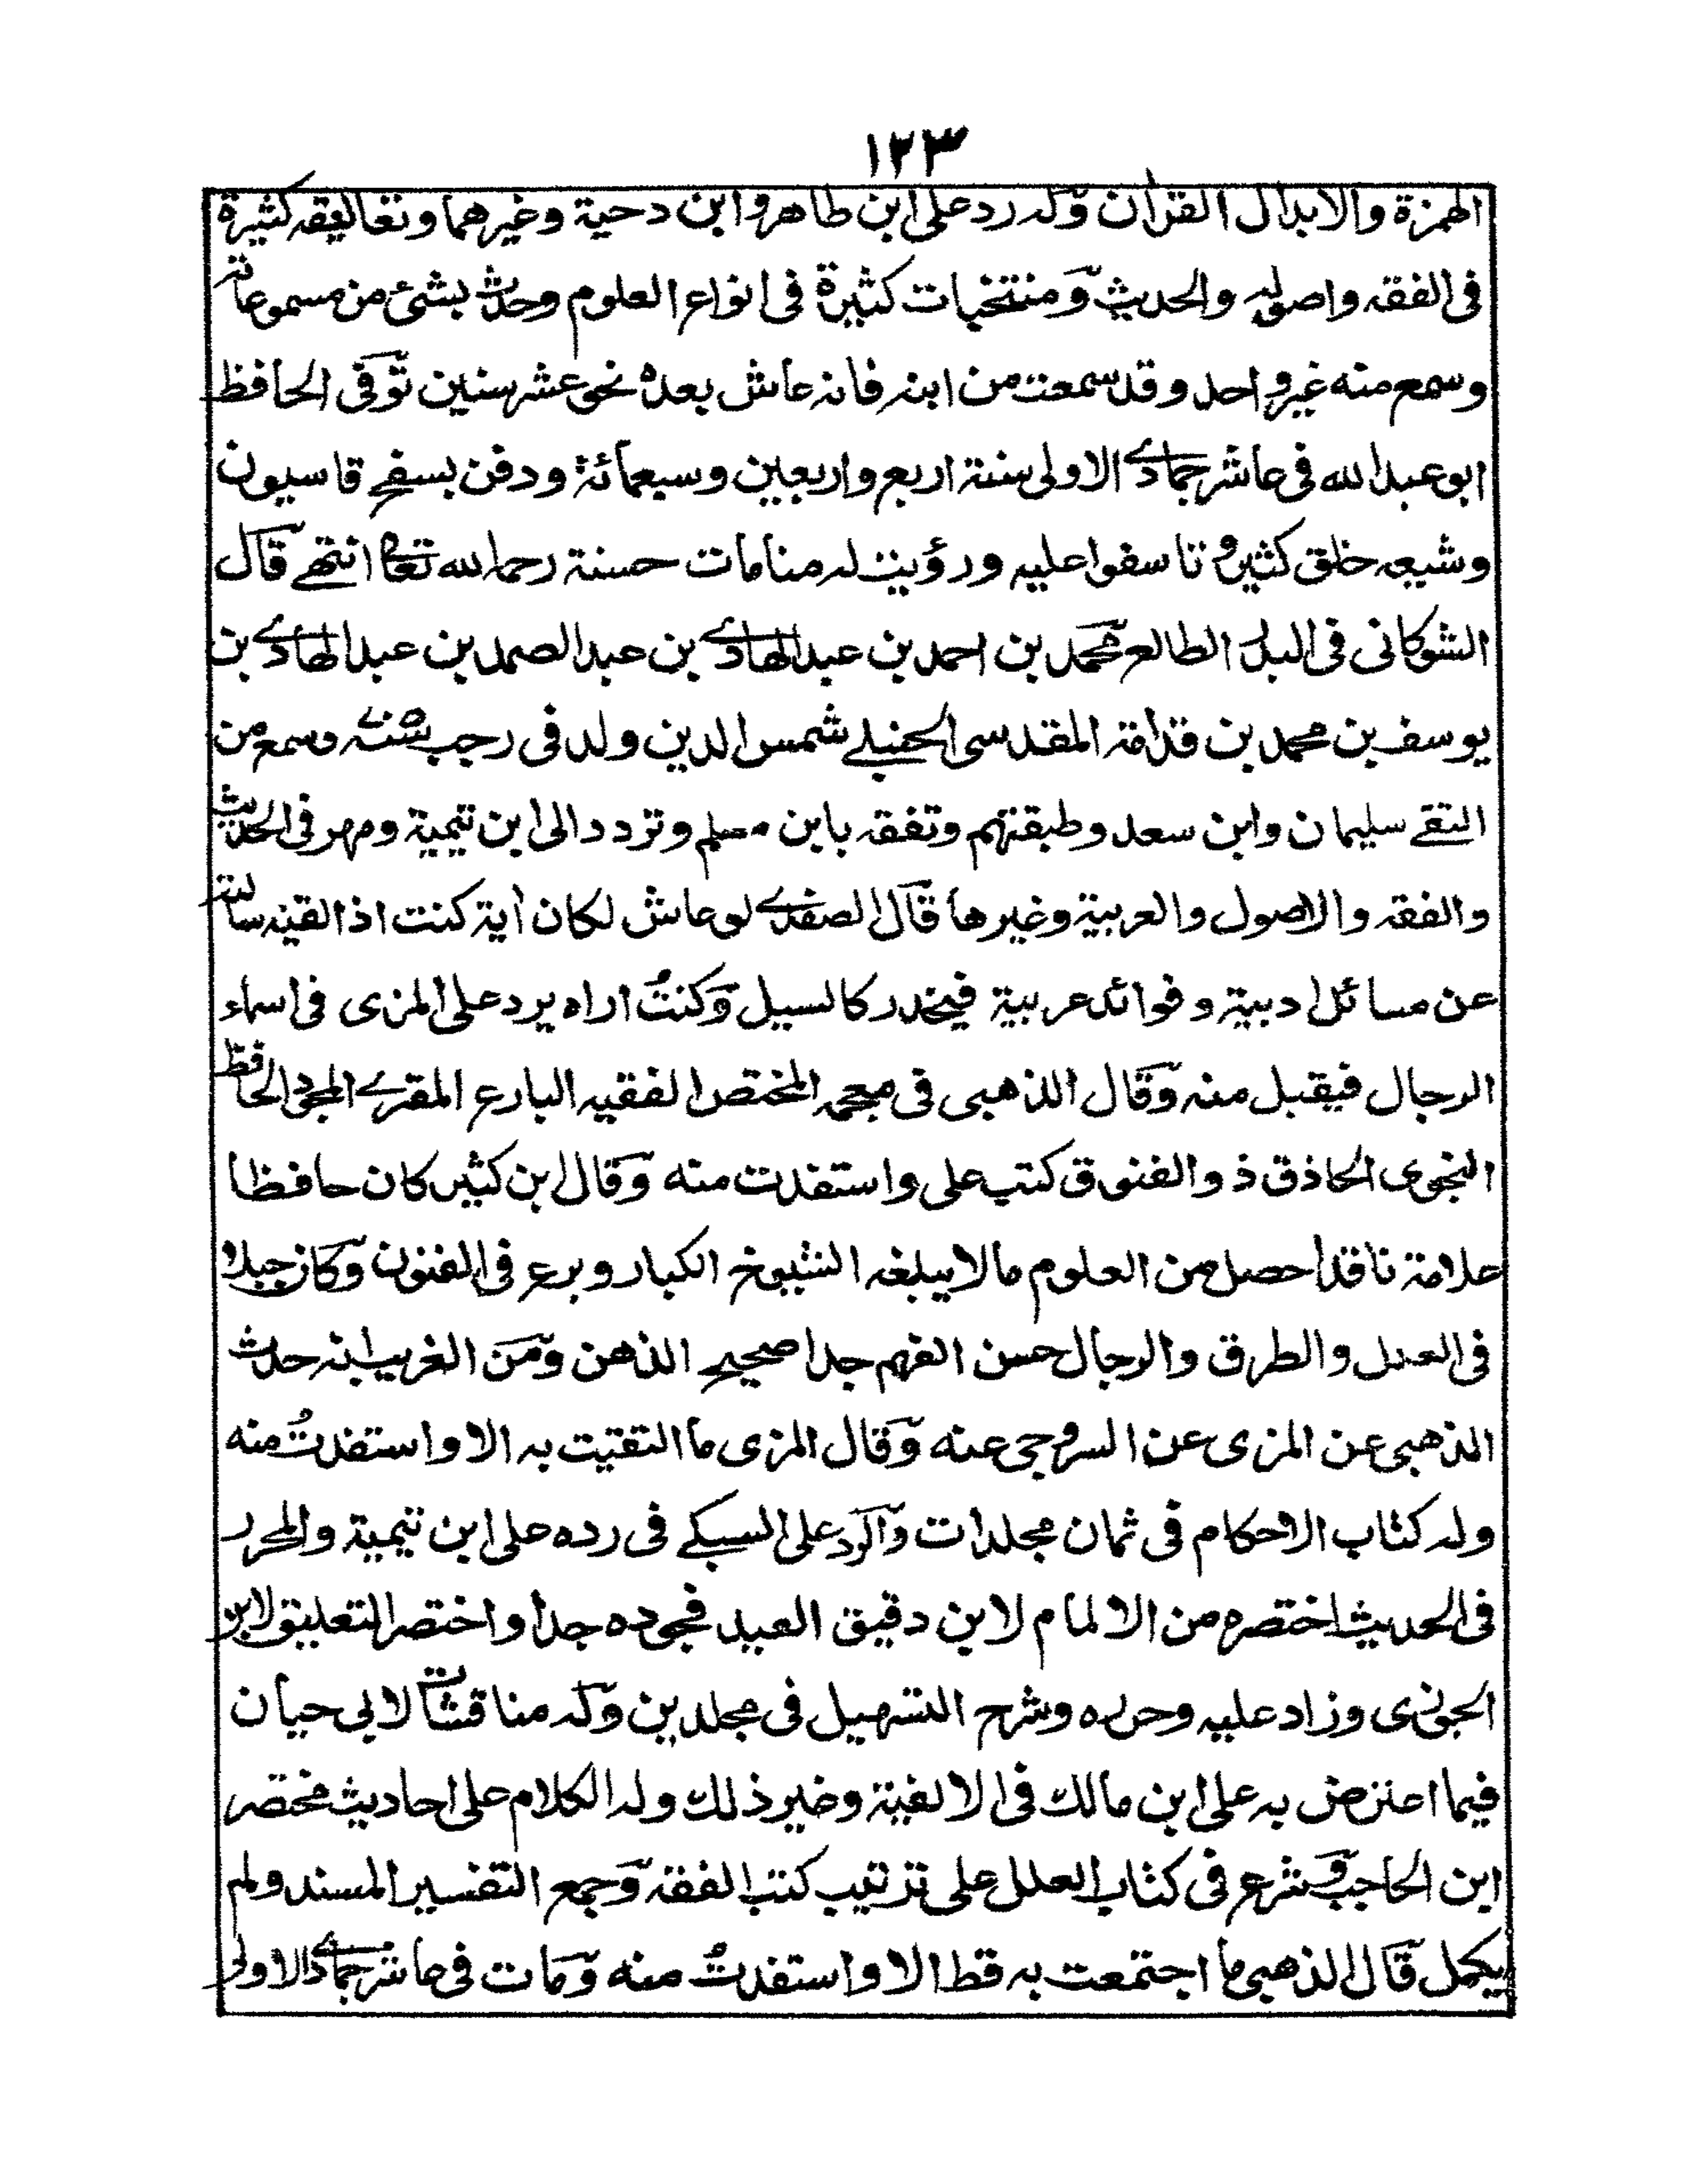 ١٢٣
الهمزة والابدال القرآن وله رد على ابن طاهر وابن دحية وغيرهما وتعاليقه كثيرة
فى الفقه واصوله والحديث ومنتخبات كثيرة فى انواع العلوم وحدث بشئ من مسموعاته
وسمع منه غير واحد وقد سمعت من ابنه فانه عاش بعده نحو عشر سنين توفى الحافظ
ابو عبد الله فى عاشر جمادى الاولى سنة اربع واربعين وسبعمائة ودفن بسفح قاسيون
وشيعه خلق كثير وتاسفوا عليه ورؤيت له منامات حسنة رحمه الله تعالى انتهى قال
الشوكانى فى البدر الطالع محمد بن احمد بن عبد الهادى بن عبد الصمد بن عبد الهادى بن
يوسف بن محمد بن قدامة المقدسى الحنبلى شمس الدين ولد فى رجب وسمع من
التقى سليمان وابن سعد وطبقتهم وتفقه بابن مسلم وتردد الى ابن تيمية ومهر فى الحديث
والفقه والاصول والعربية وغيرها قال الصفدى لو عاش لكان اية كنت اذا لقيته سالته
عن مسائل ادبية وفوائد عربية فينحدر كالسيل وكنت اراه يرد على المزى فى اسماء
الرجال فيقبل منه وقال الذهبى فى معجمه المختص الفقيه البارع المقرى المجود الحافظ
النحوى الحاذق ذو الفنون كتب على واستفدت منه وقال ابن كثير كان حافظا
علامة ناقدا حصل من العلوم ما لا يبلغه الشيوخ الكبار وبرع فى الفنون وكان جبلا
فى العلل والطرق والرجال حسن الفهم جدا صحيح الذهن ومن الغريب انه حدث
الذهبى عن المزى عن السروجى عنه وقال المزى ما التقيت به الا واستفدت منه
وله كتاب الاحكام فى ثمان مجلدات والرد على السبكى فى رده على ابن تيمية والمحرر
فى الحديث اختصره من الالمام لابن دقيق العيد فجوده جدا واختصر التعليق لابن
الجوزى وزاد عليه وحرره وشرح التسهيل فى مجلدين وله مناقشات لابى حيان
فيما اعترض به على ابن مالك فى الالفية وغير ذلك وله الكلام على احاديث مختصر
ابن الحاجب وشرع فى كتاب العلل على ترتيب كتب الفقه وجمع التفسير المسند ولم
يكمل قال الذهبى ما اجتمعت به قط الا واستفدت منه ومات فى عاشر جمادى الاولى